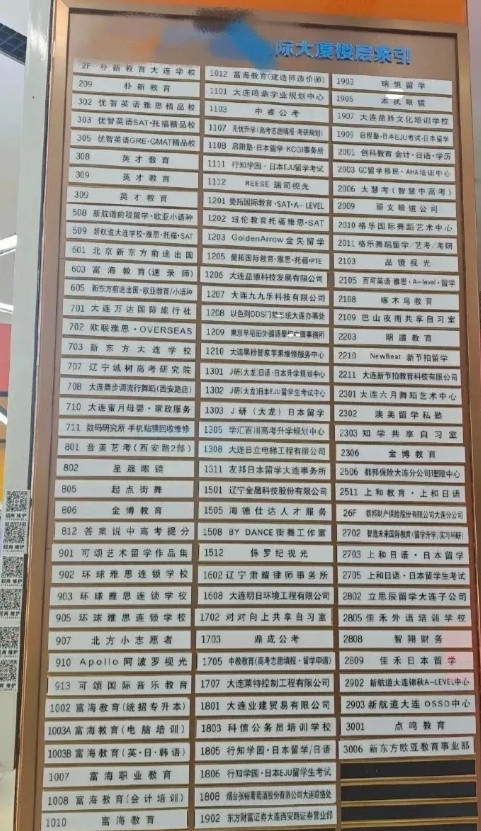 际大厦楼层索引
2F 朴新教育大连学校
209 朴新教育
302 优智英语雅思精品校
303 优智英语SAT·托福精品校
305 优智英语GRE·GMAT精品校
308 英才教育
309 英才教育
399 英才教育
508 新航道前程留学·欧亚小语种
509 新航道大连学校·雅思·托福·SAT
601 北京新东方前途出国
603 富海教育(速录师)
605 新东方前途出国·欧亚教育/小语种
701 大连万达国际旅行社
702 欧联雅思·OVERSEAS
703 新东方大连学校
707 辽宁诚树高考研究院
708 大连舞步调流行舞蹈(西安路店)
710 大连蜜月母婴·家政服务
711 数码研究所 手机贴膜回收维修
801 音美艺考(西安路2部)
802 星晟眼镜
805 起点街舞
806 金博教育
812 答案说中高考提分
901 可颂艺术留学作品集
902 环球雅思连锁学校
903 环球雅思连锁学校
905 环球雅思连锁学校
907 北方小志愿者
910 Apollo阿波罗视光
913 可颂国际音乐教育
1002 富海教育(统招专升本)
1003A 富海教育(电脑培训)
1003B 富海教育(英·日·韩语)
1007 富海职业教育
1008 富海教育(会计培训)
1010 富海教育
1012 富海教育(建造师造价师)
1101 大连鸣鼎学业规划中心
1103 中睿公考
1107 无忧升学(高考志愿填报·考研规划)
1108 启阳塾·日本留学 KCGI事务所
1111 行知学园·日本EJU留学考试
1112 REESE 瑞司视光
1201 曼拓国际教育·SAT·A-LEVEL
1202 纽伦教育托福雅思·SAT
1203 GoldenArrow 金矢留学
1205 曼拓国际教育·雅思·托福·PTE
1206 大连益德科技发展有限公司
1207 大连九九乐科技有限公司
1208 以色列DDS门 大连办事处
1209 事务所
1210 大连果粉管家苹果维修服务中心
1301 J研(大龙)日语·日本升学规划中心
1302 J研(大龙)日本EJU留学生考试中心
1303 J研(大龙)日本留学
1305 学汇百川高考升学规划中心
1308 大连日立电梯工程有限公司
1311 友邦日本留学大连事务所
1501 辽宁金晟科技股份有限公司
1505 海德仕达人才服务
1508 BY DANCE街舞工作室
1512 侏罗纪视光
1602 辽宁肃耀律师事务所
1608 大连明日环境工程有限公司
1702 对对向上共享自习室
1703 鼎成公考
1705 中教教育(高考志愿填报·留学申请)
1707 大连莱特控制工程有限公司
1801 大连业建贸易有限公司
1803 科信公务员培训学校
1805 行知学园·日本留学/日语
1806 行知学园·日本EJU留学生考试
1808 烟台张裕葡萄酿酒股份有限公司大连联络处
1902 东方财富证券大连西安路证券营业部
1903 瑞恒留学
1905 眼镜
1907 大连益晓文化培训学校
1909 启程塾·日本EJU考试·日本留学
2001 创科教育 会计·日语·学历
2003 GC留学移民·AHA培训中心
2006 太慧考(智慧中高考)
2009 翟文眼镜公司
2010 格乐国际舞蹈艺术中心
2011 格乐舞蹈留学/艺考/考研
2103 品镜视光
2105 百可英语 雅思·A-level·留学
2108 啄木鸟教育
2109 巴山夜雨共享自习室
2203 明道教育
2210 NewBeat 新节拍留学
2211 大连新节拍教育科技有限公司
2301 大连六月舞蹈艺术中心
2302 澳美留学私塾
2303 知学共享自习室
2306 金博教育
2506 都邦保险大连分公司理赔中心
2511 上和教育·上和日语
26F 都邦财产保险股份有限公司大连分公司
2702 智造未来国际教育(留学升学/实习考研)
2703 上和日语·日本留学
2705 上和日语·日本留学生考试
2802 立思辰留学大连子公司
2805 佳禾外语培训学校
2808 智翔财务
2809 佳禾日本留学
2902 新航道大连锦秋A-LEVEL中心
2903 新航道大连 OSSD中心
3001 点鸣教育
3006 新东方欧亚教育事业部